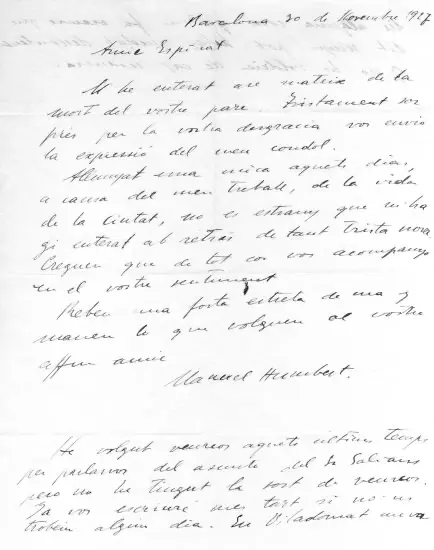 Barcelona 20 de Novembre 1927
Amic Espinat
M he enterat are mateix de la
mort del vostre pare. Tristament sor
prés per la vostra desgracia vos envio
la expressió del meu condol.
Allunyat una mica aquets dias,
a causa del meu treball, de la vida
de la ciutat, no es estrany que m'ha
gi enterat ab retrás de tant trista nova
Creguen que de tot cor vos acompanyo
en el vostre sentiment
Reben una forta estreta de ma y
manen lo que volguen al vostre
affm amic
Manuel Humbert.
He volgut veureos aquets ultims temps
per parlarvos del asumte del Sr
pero no he tingut la sort de veureos.
Ja vos escriuré mes tart si no ns
trobem algun dia. En Viladomat